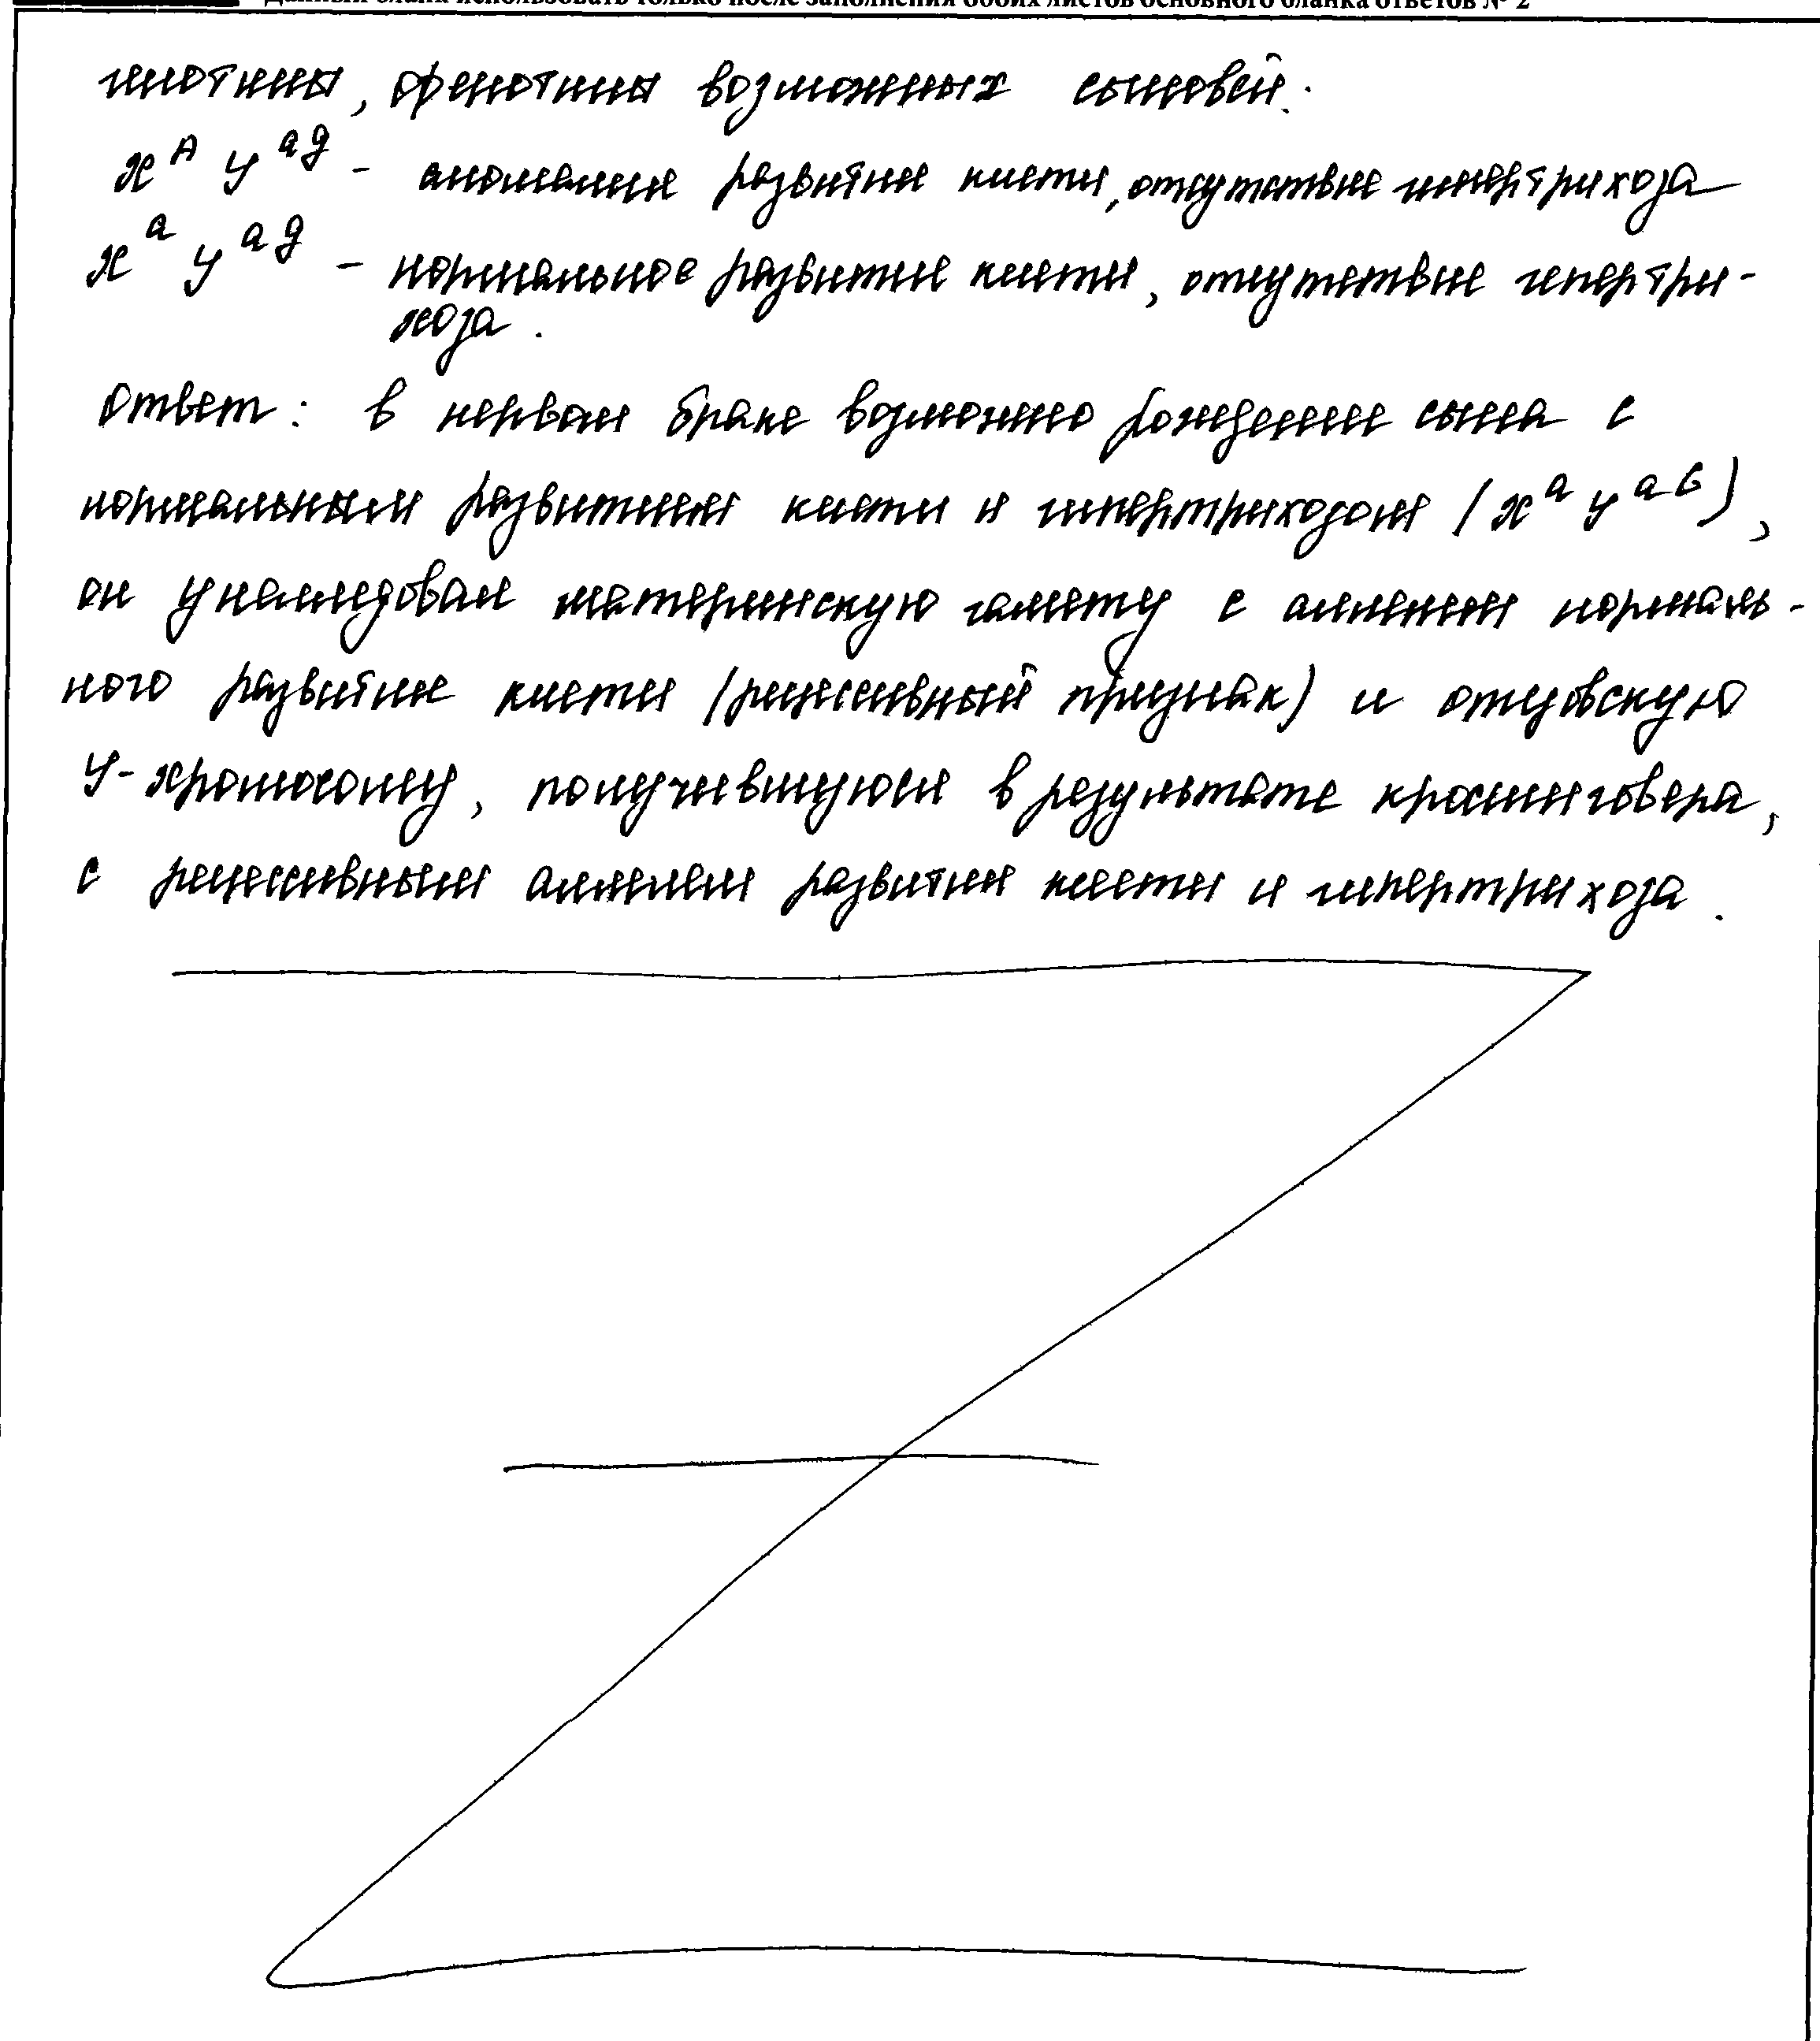 Данный бланк использовать только после заполнения обоих листов основного бланка ответов № 2
генотипы, фенотипы возможных сыновей:
X^A Y^ag - аномалия развития кисти, отсутствие гипертрихоза
X^a Y^ag - нормальное развитие кисти, отсутствие гипертри-
хоза.
Ответ: в первом браке возможно рождение сына с
нормальным развитием кисти и гипертрихозом (X^a Y^aG),
он унаследовал материнскую гамету с аллелем нормаль-
ного развития кисти (рецессивный признак) и отцовскую
Y-хромосому, получившуюся в результате кроссинговера,
с рецессивным аллелем развития кисти и гипертрихоза.